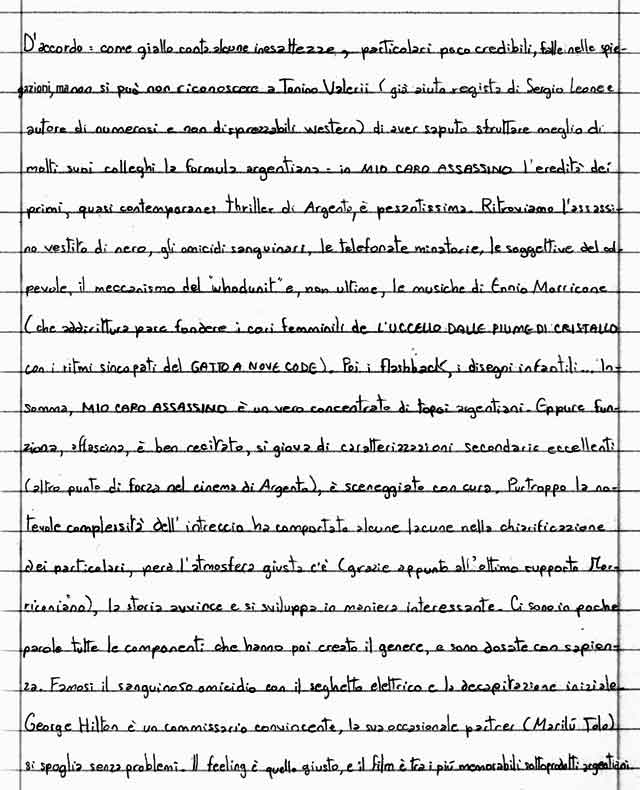 D'accordo: come giallo conta alcune inesattezze, particolari poco credibili, falle nelle spie-
gazioni, ma non si può non riconoscere a Tonino Valerii (già aiuto regista di Sergio Leone e
autore di numerosi e non disprezzabili western) di aver saputo sfruttare meglio di
molti suoi colleghi la formula argentiana: in MIO CARO ASSASSINO l'eredità dei
primi, quasi contemporanei thriller di Argento, è pesantissima. Ritroviamo l'assassi-
no vestito di nero, gli omicidi sanguinari, le telefonate minatorie, le soggettive del col-
pevole, il meccanismo del "whodunit" e, non ultime, le musiche di Ennio Morricone
(che addirittura pare fondere i cori femminili de L'UCCELLO DALLE PIUME DI CRISTALLO
con i ritmi sincopati del GATTO A NOVE CODE). Poi i flashback, i disegni infantili... In-
somma, MIO CARO ASSASSINO è un vero concentrato di topoi argentiani. Eppure fun-
ziona, affascina, è ben recitato, si giova di caratterizzazioni secondarie eccellenti
(altro punto di forza nel cinema di Argento), è sceneggiato con cura. Purtroppo la no-
tevole complessità dell'intreccio ha comportato alcune lacune nella chiarificazione
dei particolari, però l'atmosfera giusta c'è (grazie appunto all'ottimo supporto Mor-
riconiano), la storia avvince e si sviluppa in maniera interessante. Ci sono in poche
parole tutte le componenti che hanno poi creato il genere, e sono dosate con sapien-
za. Famosi il sanguinoso omicidio con il seghetto elettrico e la decapitazione iniziale.
George Hilton è un commissario convincente, la sua occasionale partner (Marilù Tolo)
si spoglia senza problemi. Il feeling è quello giusto, e il film è tra i più memorabili sottoprodotti argentiani.